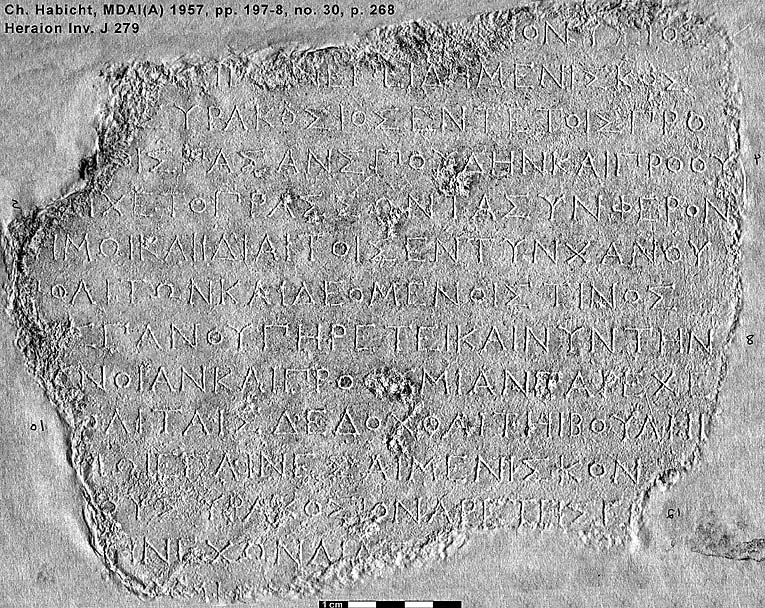 Ch. Habicht, MDAI(A) 1957, pp. 197-8, no. 30, p. 268
Heraion Inv. J 279
ΟΝΥΣΙΟΣ
ΕΠΕΙΔΗΜΕΝΙΣΚΟΣ
ΣΥΡΑΚΟΣΙΟΣΕΝΤΕΤΟΙΣΠΡΟ
ΙΣΠΑΣΑΝΣΠΟΥΔΗΝΚΑΙΠΡΟΘΥ
ΙΧΕΤΟΠΡΑΣΣΩΝΤΑΣΥΝΦΕΡΟΝ
ΙΜΩΙΚΑΙΙΔΙΑΙΤΟΙΣΕΝΤΥΝΧΑΝΟΥ
ΟΛΙΤΩΝΚΑΙΔΕΟΜΕΝΟΙΣΤΙΝΟΣ
ΣΠΑΝΟΥΠΗΡΕΤΕΙΚΑΙΝΥΝΤΗΝ
ΝΟΙΑΝΚΑΙΠΡΟΘΥΜΙΑΝΠΑΡΕΧΕ
ΟΛΙΤΑΙΣΔΕΔΟΧΘΑΙΤΗΙΒΟΥΛΗΙ
ΜΩΙΕΠΑΙΝΕΣΑΙΜΕΝΙΣΚΟΝ
ΟΥΣΥΡΑΚΟΣΙΟΝΑΡΕΤΗΣΕ
ΙΝΕΧΩΝΔΙΑ
5
8
10
13
1 cm